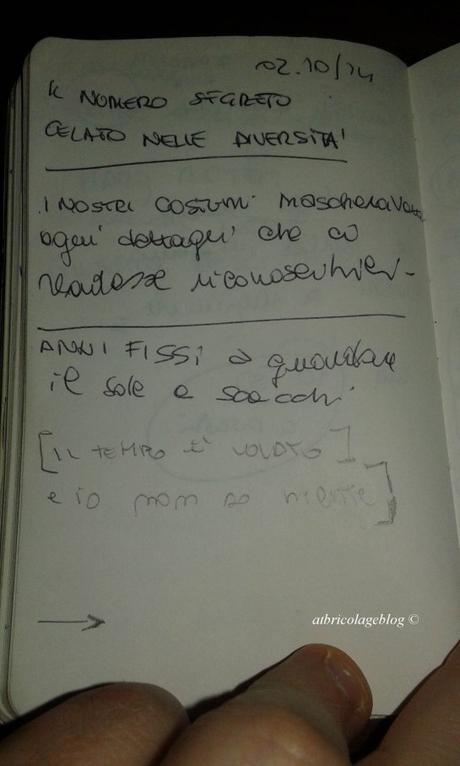 02.10/14
IL NUMERO SEGRETO
CELATO NELLE DIVERSITA'
I NOSTRI COSTUMI mascheravano
ogni dettagli che ci
rendesse riconoscibili
ANNI FISSI a guardare
il sole a scacchi
[IL TEMPO È VOLATO]
e io non so niente]
atbricolageblog ©